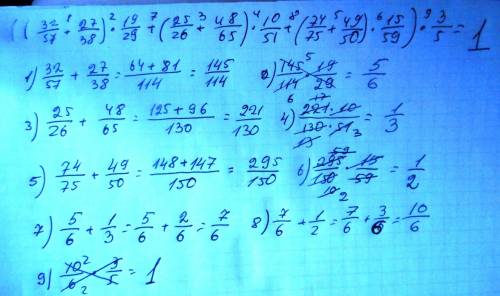 ((32/57 +¹ 27/38) ·² 19/29 +⁷ (25/26 +³ 48/65) ·⁴ 10/51 +⁸ (74/75 +⁵ 49/50) ·⁶ 15/59) ·⁹ 3/5 = 1
1) 32/57 + 27/38 = 64+81/114 = 145/114 2) 145 5/114 6 · 19/29 = 5/6
3) 25/26 + 48/65 = 125+96/130 = 221/130 4) 221 17 · 10/130 13 · 51 3 = 1/3
5) 74/75 + 49/50 = 148+147/150 = 295/150 6) 295 59/150 10 2 · 15/59 = 1/2
7) 5/6 + 1/3 = 5/6 + 2/6 = 7/6 8) 7/6 + 1/2 = 7/6 + 3/6 = 10/6
9) 10 2/6 2 · 3/5 = 1